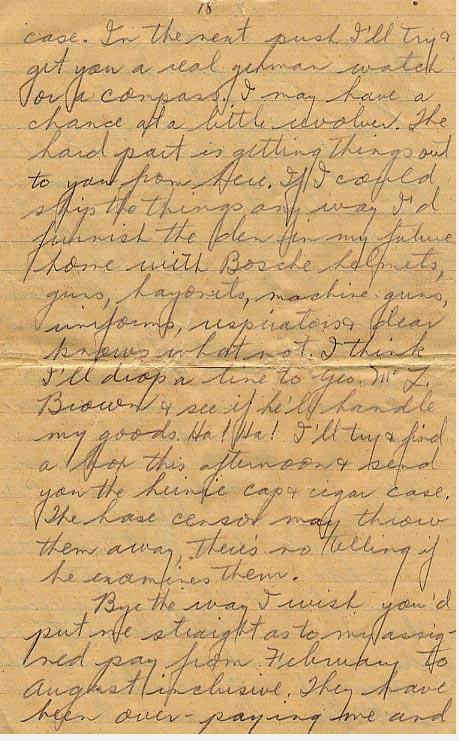 18
case. In the next push I'll try &
get you a real german watch
or a compass. I may have a
chance at a little revolver. The
hard part is getting things out
to you from here. If I could
ship the things any way I'd
furnish the den in my future
home with Bosche helmets,
guns, bayonets, machine guns,
uniforms, respirators & dear
knows what not. I think
I'll drop a line to Geo. Mc L.
Brown & see if he'll handle
my goods. Ha! Ha! I'll try & find
a box this afternoon & send
you the heinie cap & cigar case.
The base censor may throw
them away, there's no telling if
he examines them.
Bye the way I wish you'd
put me straight as to my assig-
ned pay from February to
August inclusive. They have
been over-paying me and